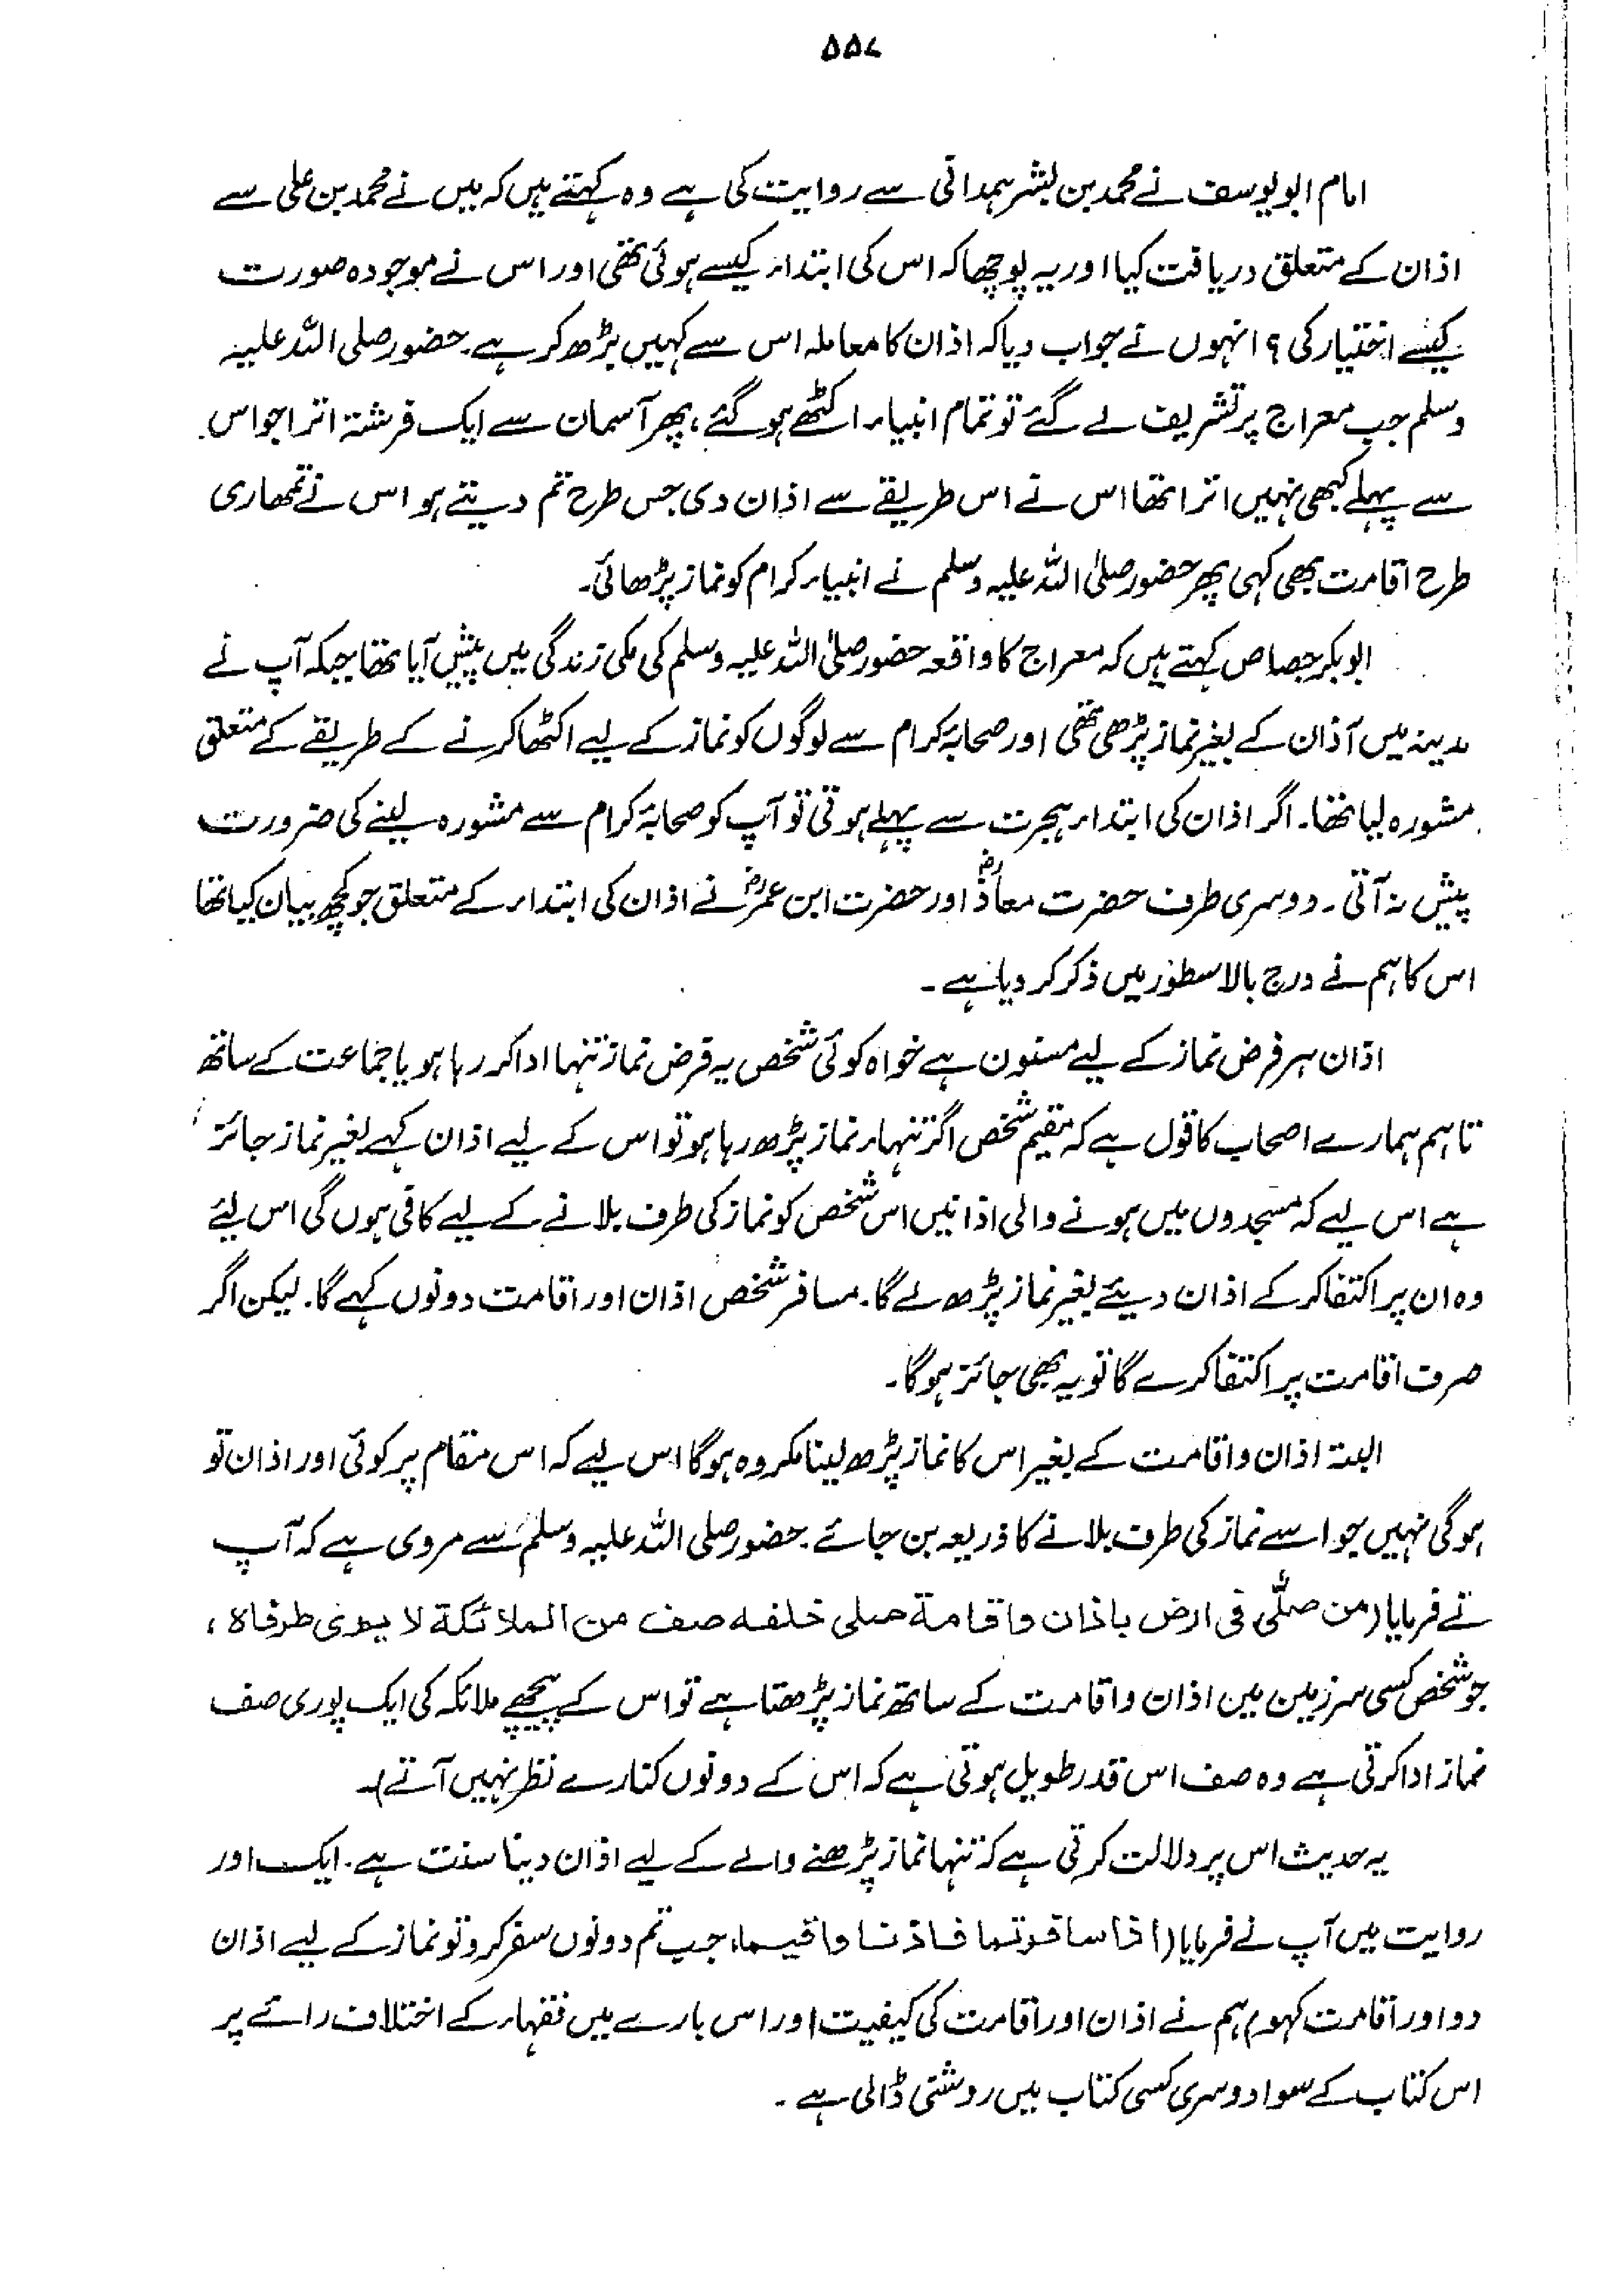 ۵۵۷
امام ابو یوسف نے محمد بن بشر ہمدانی سے روایت کی ہے وہ کہتے ہیں کہ میں نے محمد بن علی سے
اذان کے متعلق دریافت کیا اور یہ پوچھا کہ اس کی ابتداء کیسے ہوئی تھی اور اس نے موجودہ صورت
کیسے اختیار کی؟ انہوں نے جواب دیا کہ اذان کا معاملہ اس سے کہیں بڑھ کر ہے۔ حضور صلی اللہ علیہ
وسلم جب معراج پر تشریف لے گئے تو تمام انبیاء اکٹھے ہو گئے، پھر آسمان سے ایک فرشتہ اترا جو اس
سے پہلے کبھی نہیں اترا تھا اس نے اس طریقے سے اذان دی جس طرح تم دیتے ہو اس نے تمھاری
طرح اقامت بھی کہی پھر حضور صلی اللہ علیہ وسلم نے انبیاء کرام کو نماز پڑھائی۔
ابو بکر جصاص کہتے ہیں کہ معراج کا واقعہ حضور صلی اللہ علیہ وسلم کی مکی زندگی میں پیش آیا تھا جبکہ آپ نے
مدینہ میں آذان کے بغیر نماز پڑھی تھی اور صحابۂ کرام سے لوگوں کو نماز کے لیے اکٹھا کرنے کے طریقے کے متعلق
مشورہ لیا تھا۔ اگر اذان کی ابتداء ہجرت سے پہلے ہوتی تو آپ کو صحابۂ کرام سے مشورہ لینے کی ضرورت
پیش نہ آتی۔ دوسری طرف حضرت معاذؓ اور حضرت ابن عمرؓ نے اذان کی ابتداء کے متعلق جو کچھ بیان کیا تھا
اس کا ہم نے درج بالا سطور میں ذکر کر دیا ہے۔
اذان ہر فرض نماز کے لیے مسنون ہے خواہ کوئی شخص یہ فرض نماز تنہا ادا کر رہا ہو یا جماعت کے ساتھ
تاہم ہمارے اصحاب کا قول ہے کہ مقیم شخص اگر تنہا نماز پڑھ رہا ہو تو اس کے لیے اذان کہے بغیر نماز جائز
ہے اس لیے کہ مسجدوں میں ہونے والی اذانیں اس شخص کو نماز کی طرف بلانے کے لیے کافی ہوں گی اس لئے
وہ ان پر اکتفا کر کے اذان دیئے بغیر نماز پڑھ لے گا۔ مسافر شخص اذان اور اقامت دونوں کہے گا۔ لیکن اگر
صرف اقامت پر اکتفا کرے گا تو یہ بھی جائز ہوگا۔
البتہ اذان و اقامت کے بغیر اس کا نماز پڑھ لینا مکروہ ہوگا اس لیے کہ اس مقام پر کوئی اور اذان تو
ہوگی نہیں جو اسے نماز کی طرف بلانے کا ذریعہ بن جائے۔ حضور صلی اللہ علیہ وسلم سے مروی ہے کہ آپ
نے فرمایا (من صلّٰی فی ارض باذان واقامة صلی خلفه صف من الملائكة لا یری طرفاه،
جو شخص کسی سرزمین میں اذان و اقامت کے ساتھ نماز پڑھتا ہے تو اس کے پیچھے ملائکہ کی ایک پوری صف
نماز ادا کرتی ہے وہ صف اس قدر طویل ہوتی ہے کہ اس کے دونوں کنارے نظر نہیں آتے)۔
یہ حدیث اس پر دلالت کرتی ہے کہ تنہا نماز پڑھنے والے کے لیے اذان دینا سنت ہے۔ ایک اور
روایت میں آپ نے فرمایا (اذا سافرتما فاذنا واقیما، جب تم دونوں سفر کرو تو نماز کے لیے اذان
دو اور اقامت کہو) ہم نے اذان اور اقامت کی کیفیت اور اس بارے میں فقہاء کے اختلاف رائے پر
اس کتاب کے سوا دوسری کسی کتاب میں روشنی ڈالی ہے۔